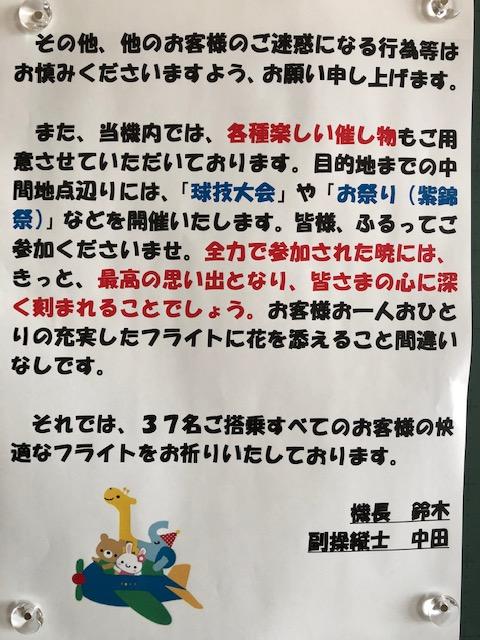 その他、他のお客様のご迷惑になる行為等は
お慎みくださいますよう、お願い申し上げます。
また、当機内では、各種楽しい催し物もご用
意させていただいております。目的地までの中
間地点辺りには、「球技大会」や「お祭り（紫錦
祭）」などを開催いたします。皆様、ふるってご
参加くださいませ。全力で参加された暁には、
きっと、最高の思い出となり、皆さまの心に深
く刻まれることでしょう。お客様お一人おひと
りの充実したフライトに花を添えること間違い
なしです。
それでは、３７名ご搭乗すべてのお客様の快
適なフライトをお祈りいたしております。
機長　鈴木
副操縦士　中田